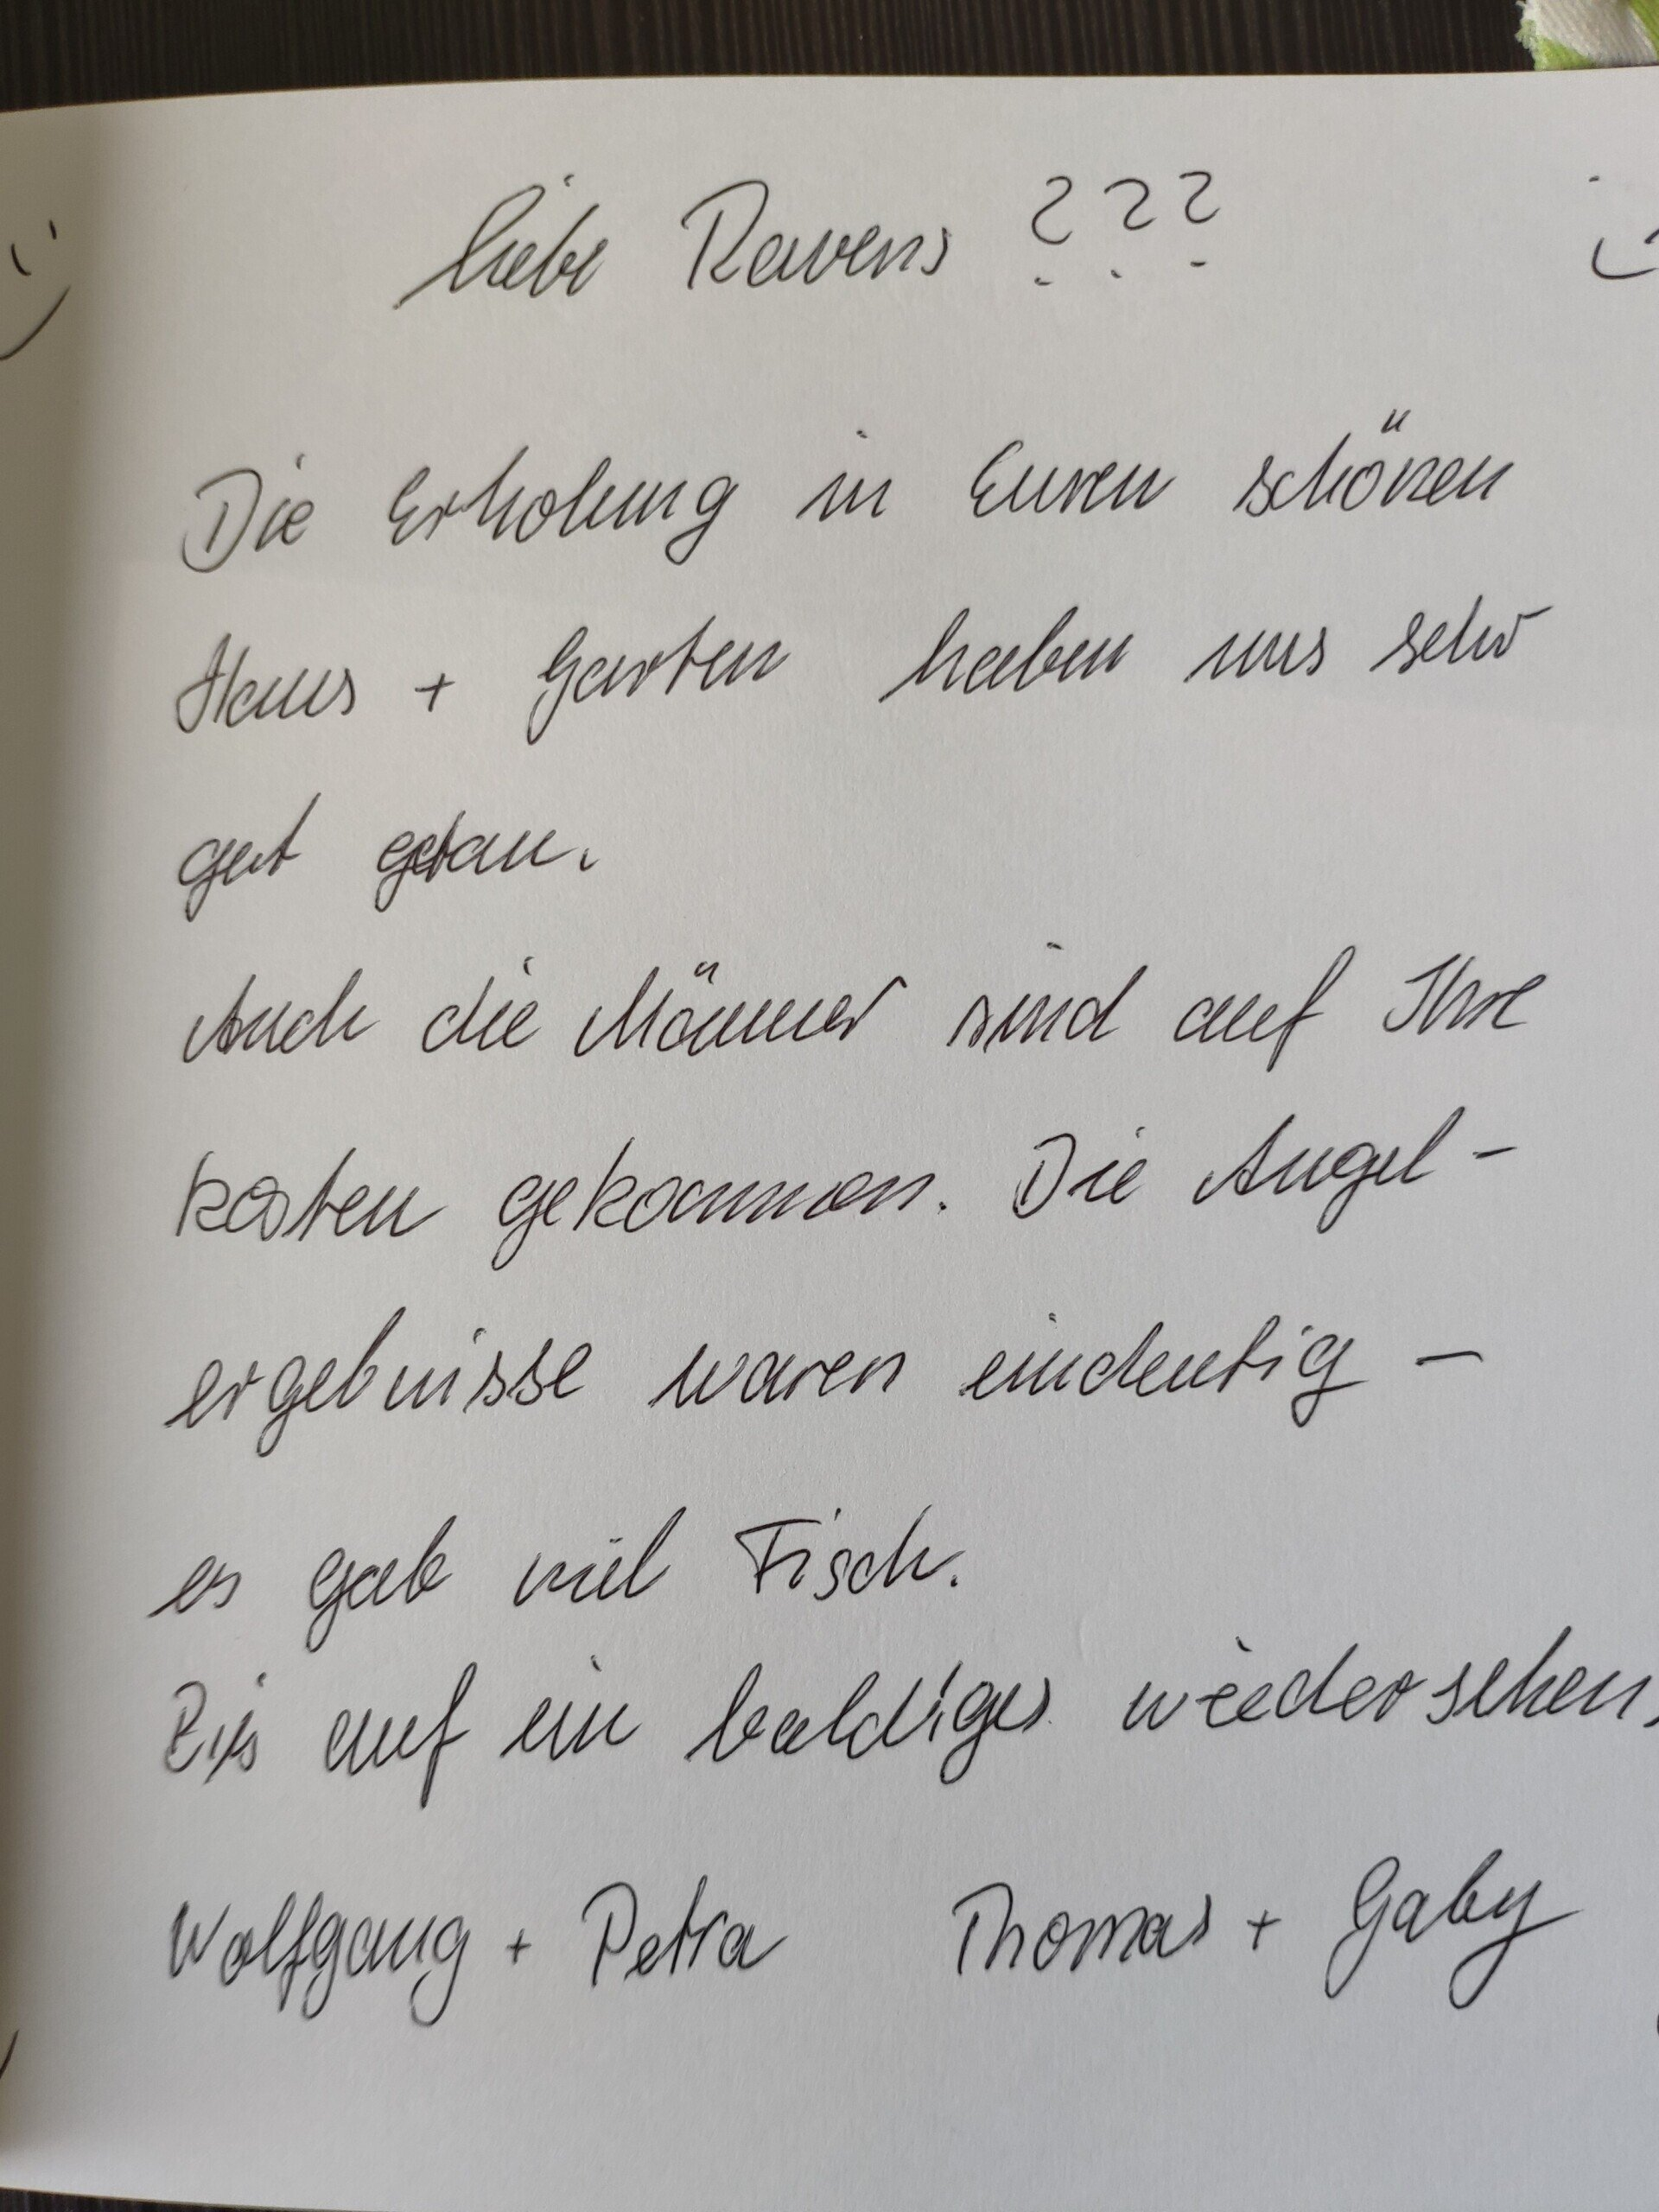 liebe Ravens ???
Die Erholung in Euren schönen
Haus + Garten haben uns sehr
gut getan.
Auch die Männer sind auf Ihre
Kosten gekommen. Die Angel-
ergebnisse waren eindeutig -
es gab viel Fisch.
Bis auf ein baldiges wiedersehen.
Wolfgang + Petra Thomas + Gaby